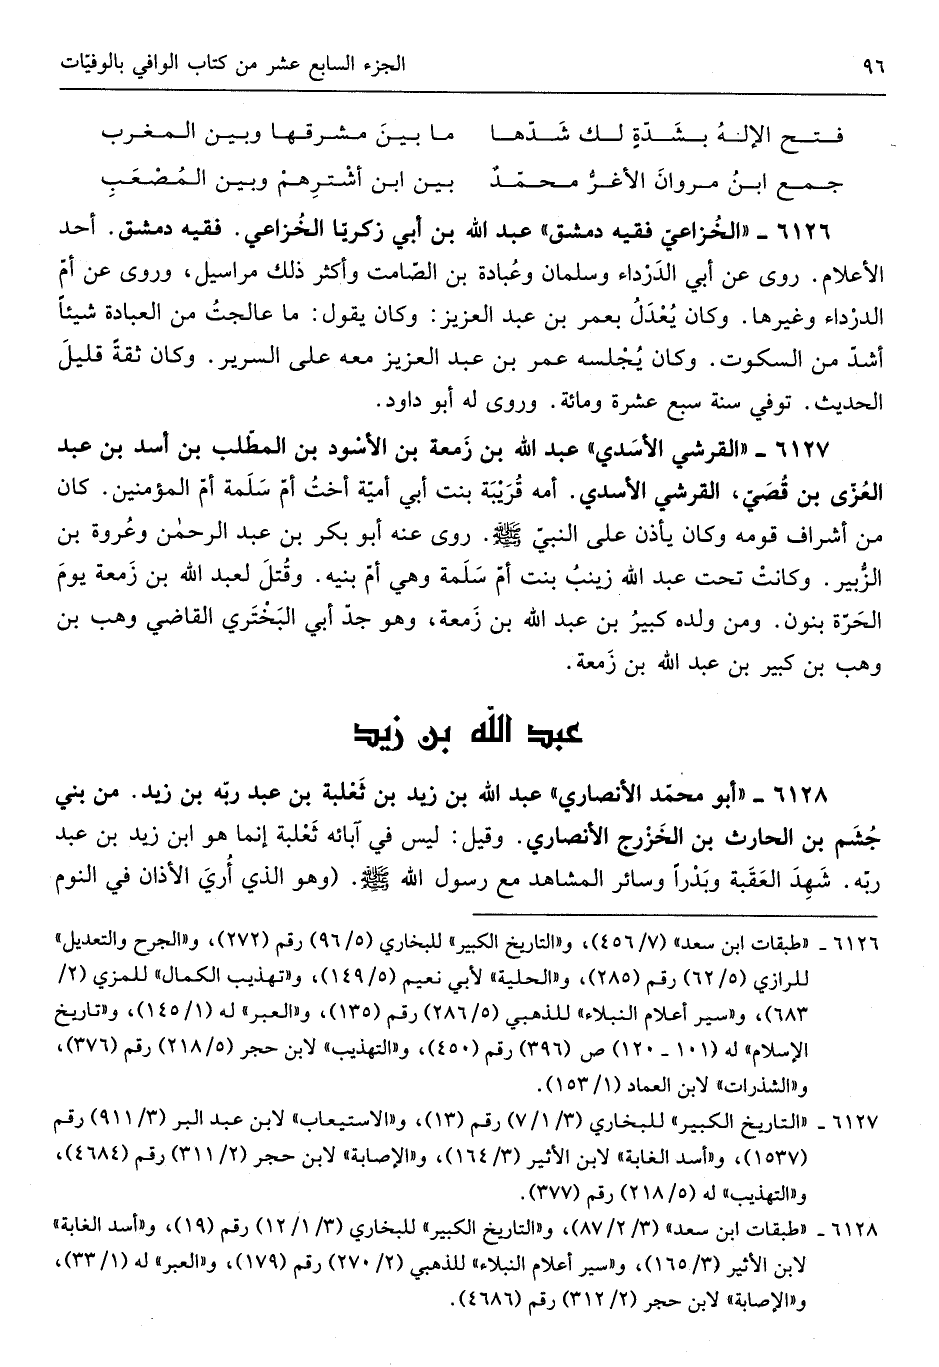 ٩٦ الجزء السابع عشر من كتاب الوافي بالوفيّات
فـتـح الإلـهُ بـشَـدّةٍ لـك شَـدّهـا مـا بـيـنَ مـشـرقـهـا وبـيـن الـمـغـرب
جـمـع ابـنُ مـروانَ الأغـرُّ مـحـمّـدٌ بـيـن ابـن أشْـتـرِهـمْ وبـيـن الـمُـصْـعَـبِ
٦١٢٦ ـ «الخُزاعيّ فقيه دمشق» عبد الله بن أبي زكريّا الخُزاعي. فقيه دمشق. أحد
الأعلام. روى عن أبي الدَرْداء وسلمان وعُبادة بن الصّامت وأكثر ذلك مراسيل، وروى عن أمّ
الدرْداء وغيرها. وكان يُعْدَلُ بعمر بن عبد العزيز: وكان يقول: ما عالجتُ من العبادة شيئاً
أشدّ من السكوت. وكان يُجْلسه عمر بن عبد العزيز معه على السرير. وكان ثقةً قليلَ
الحديث. توفي سنة سبع عشرة ومائة. وروى له أبو داود.
٦١٢٧ ـ «القرشي الأسَدي» عبد الله بن زَمعة بن الأسْود بن المطّلب بن أسد بن عبد
العُزّى بن قُصَيّ، القرشي الأسدي. أمه قُرَيْبَة بنت أبي أميّة أختُ أمّ سَلَمة أمّ المؤمنين. كان
من أشراف قومه وكان يأذن على النبيّ ﷺ. روى عنه أبو بكر بن عبد الرحمٰن وعُروة بن
الزُبير. وكانتْ تحت عبد الله زينبُ بنت أمّ سَلَمة وهي أمّ بنيه. وقُتلَ لعبد الله بن زَمعة يومَ
الحَرّة بنون. ومن ولده كبيرُ بن عبد الله بن زَمعة، وهو جدّ أبي البَخْتَري القاضي وهب بن
وهب بن كبير بن عبد الله بن زَمعة.
عبد اللّه بن زيد
٦١٢٨ ـ «أبو محمّد الأنصاري» عبد الله بن زيد بن ثَعْلبة بن عبد ربّه بن زيد. من بني
جُشَم بن الحارث بن الخَزْرج الأنصاري. وقيل: ليس في آبائه ثَعْلبة إنما هو ابن زيد بن عبد
ربّه. شَهِدَ العَقَبة وبَدْراً وسائر المشاهد مع رسول الله ﷺ. (وهو الذي أُريَ الأذان في النوم
٦١٢٦ ـ «طبقات ابن سعد» (٧/ ٤٥٦)، و«التاريخ الكبير» للبخاري (٥/ ٩٦) رقم (٢٧٢)، و«الجرح والتعديل»
للرازي (٥/ ٦٢) رقم (٢٨٥)، و«الحلية» لأبي نعيم (٥/ ١٤٩)، و«تهذيب الكمال» للمزي (٢/
٦٨٣)، و«سير أعلام النبلاء» للذهبي (٥/ ٢٨٦) رقم (١٣٥)، و«العبر» له (١/ ١٤٥)، و«تاريخ
الإسلام» له (١٠١ ـ ١٢٠) ص (٣٩٦) رقم (٤٥٠)، و«التهذيب» لابن حجر (٥/ ٢١٨) رقم (٣٧٦)،
و«الشذرات» لابن العماد (١/ ١٥٣).
٦١٢٧ ـ «التاريخ الكبير» للبخاري (٣/ ١/ ٧) رقم (١٣)، و«الاستيعاب» لابن عبد البر (٣/ ٩١١) رقم
(١٥٣٧)، و«أسد الغابة» لابن الأثير (٣/ ١٦٤)، و«الإصابة» لابن حجر (٢/ ٣١١) رقم (٤٦٨٤)،
و«التهذيب» له (٥/ ٢١٨) رقم (٣٧٧).
٦١٢٨ ـ «طبقات ابن سعد» (٣/ ٢/ ٨٧)، و«التاريخ الكبير» للبخاري (٣/ ١/ ١٢) رقم (١٩)، و«أسد الغابة»
لابن الأثير (٣/ ١٦٥)، و«سير أعلام النبلاء» للذهبي (٢/ ٢٧٠) رقم (١٧٩)، و«العبر» له (١/ ٣٣)،
و«الإصابة» لابن حجر (٢/ ٣١٢) رقم (٤٦٨٦).